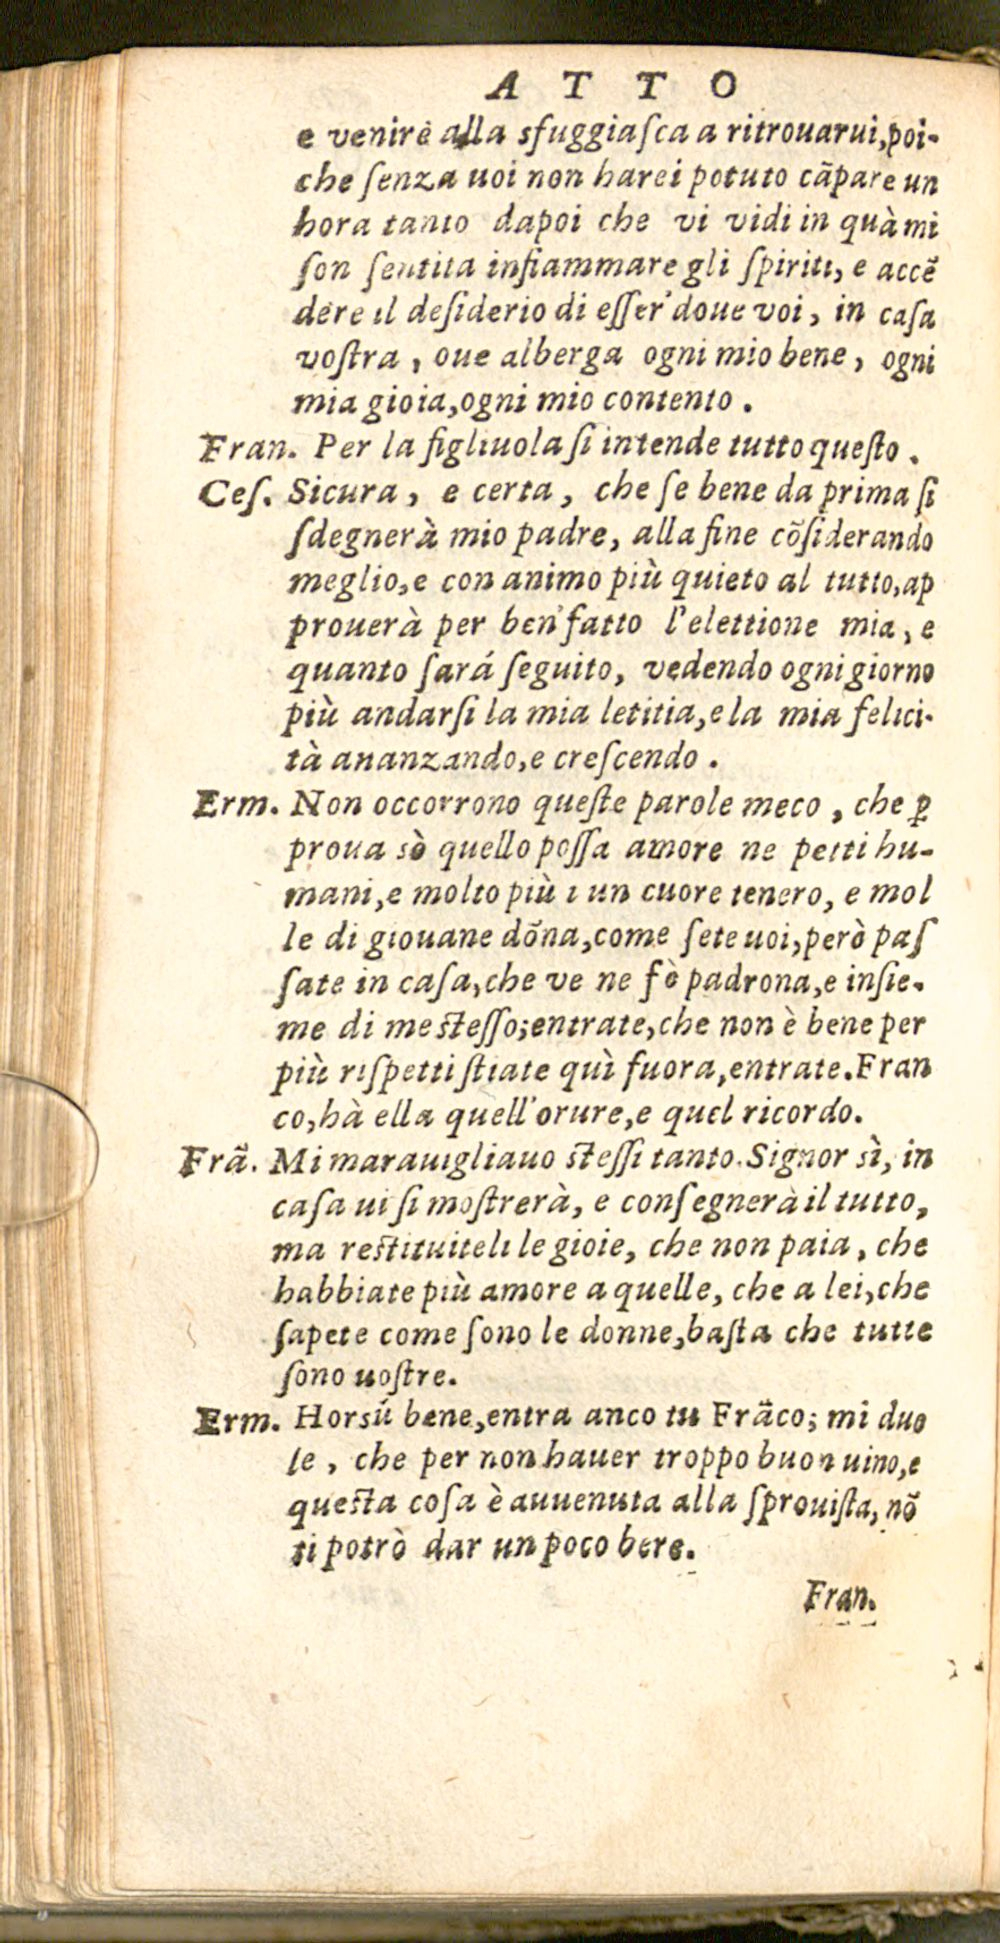 ATTO
e venire alla sfuggiaſca a ritrouarui,poi-
che ſenza uoi non harei potuto cãpare un
hora tanto dapoi che vi vidi in quà mi
ſon ſentita infiammare gli ſpiriti, e accẽ
dere il deſiderio di eſſer' doue voi, in caſa
voſtra, oue alberga ogni mio bene, ogni
mia gioia,ogni mio contento.
Fran. Per la figliuola ſi intende tutto queſto.
Ceſ. Sicura, e certa, che ſe bene da prima ſi
ſdegnerà mio padre, alla fine cõſiderando
meglio,e con animo più quieto al tutto,ap
prouerà per ben'fatto l'elettione mia, e
quanto ſará ſeguito, vedendo ogni giorno
più andarſi la mia letitia,e la mia felici-
tà auanzando,e creſcendo.
Erm. Non occorrono queſte parole meco, che ꝑ
proua sò quello poſſa amore ne petti hu-
mani,e molto più ı un cuore tenero, e mol
le di giouane dõna,come ſete uoi,però paſ
ſate in caſa,che ve ne fò padrona,e inſie-
me di me steſſo;entrate,che non è bene per
più riſpetti ſtiate quì fuora,entrate.Fran
co,hà ella quell'orure,e quel ricordo.
Frã. Mi marauigliauo steſſi tanto.Signor sì, in
caſa ui ſi moſtrerà, e conſegnerà il tutto,
ma restituiteli le gioie, che non paia, che
habbiate più amore a quelle, che a lei,che
ſapete come ſono le donne,baſta che tutte
ſono uoſtre.
Erm. Horsú bene,entra anco tu Frãco; mi duo
le, che per non hauer troppo buon uino,e
questa coſa è auuenuta alla ſprouiſta, nõ
ti potrò dar un poco bere.
Fran.